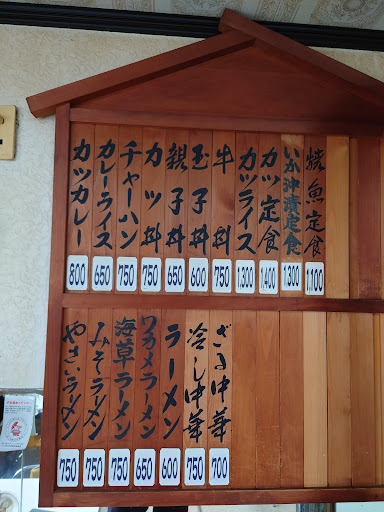 焼魚定食 1.100
いか沖漬定食 1.300
カツ定食 1.400
カツライス 1.300
牛丼 750
玉子丼 600
親子丼 650
カツ丼 750
チャーハン 750
カレーライス 650
カツカレー 800
ざる中華 700
冷し中華 750
ラーメン 600
ワカメラーメン 650
海草ラーメン 750
みそラーメン 750
やさいラーメン 750